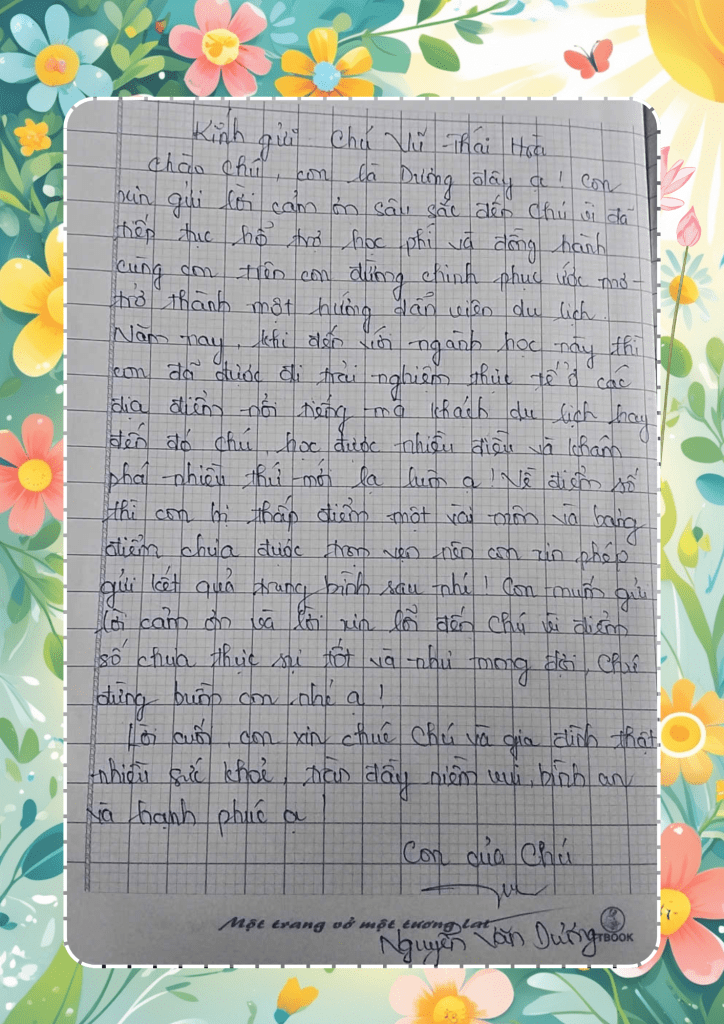 Kính gửi Chú Vũ Thái Hòa
Chào chú, con là Dương đây ạ! Con
xin gửi lời cảm ơn sâu sắc đến Chú vì đã
tiếp tục hổ trợ học phí và đồng hành
cùng con trên con đường chinh phục ước mơ
trở thành một hướng dẫn viên du lịch.
Năm nay, khi đến với ngành học này thì
con đã được đi trải nghiệm thực tế ở các
địa điểm nổi tiếng mà khách du lịch hay
đến đó chú, học được nhiều điều và khám
phá nhiều thứ mới lạ lắm ạ! Về điểm số
thì con bị thấp điểm một vài môn và bảng
điểm chưa được trọn vẹn nên con xin phép
gửi kết quả trung bình sau nhé! Con muốn gửi
lời cảm ơn và lời xin lỗi đến Chú vì điểm
số chưa thực sự tốt và như mong đợi, Chú
đừng buồn con nhé ạ!
Lời cuối, con xin chúc Chú và gia đình thật
nhiều sức khoẻ, tràn đầy niềm vui, bình an
và hạnh phúc ạ!
Con của Chú
Một trang vở một tương lai
Nguyễn Văn Dương TBOOK